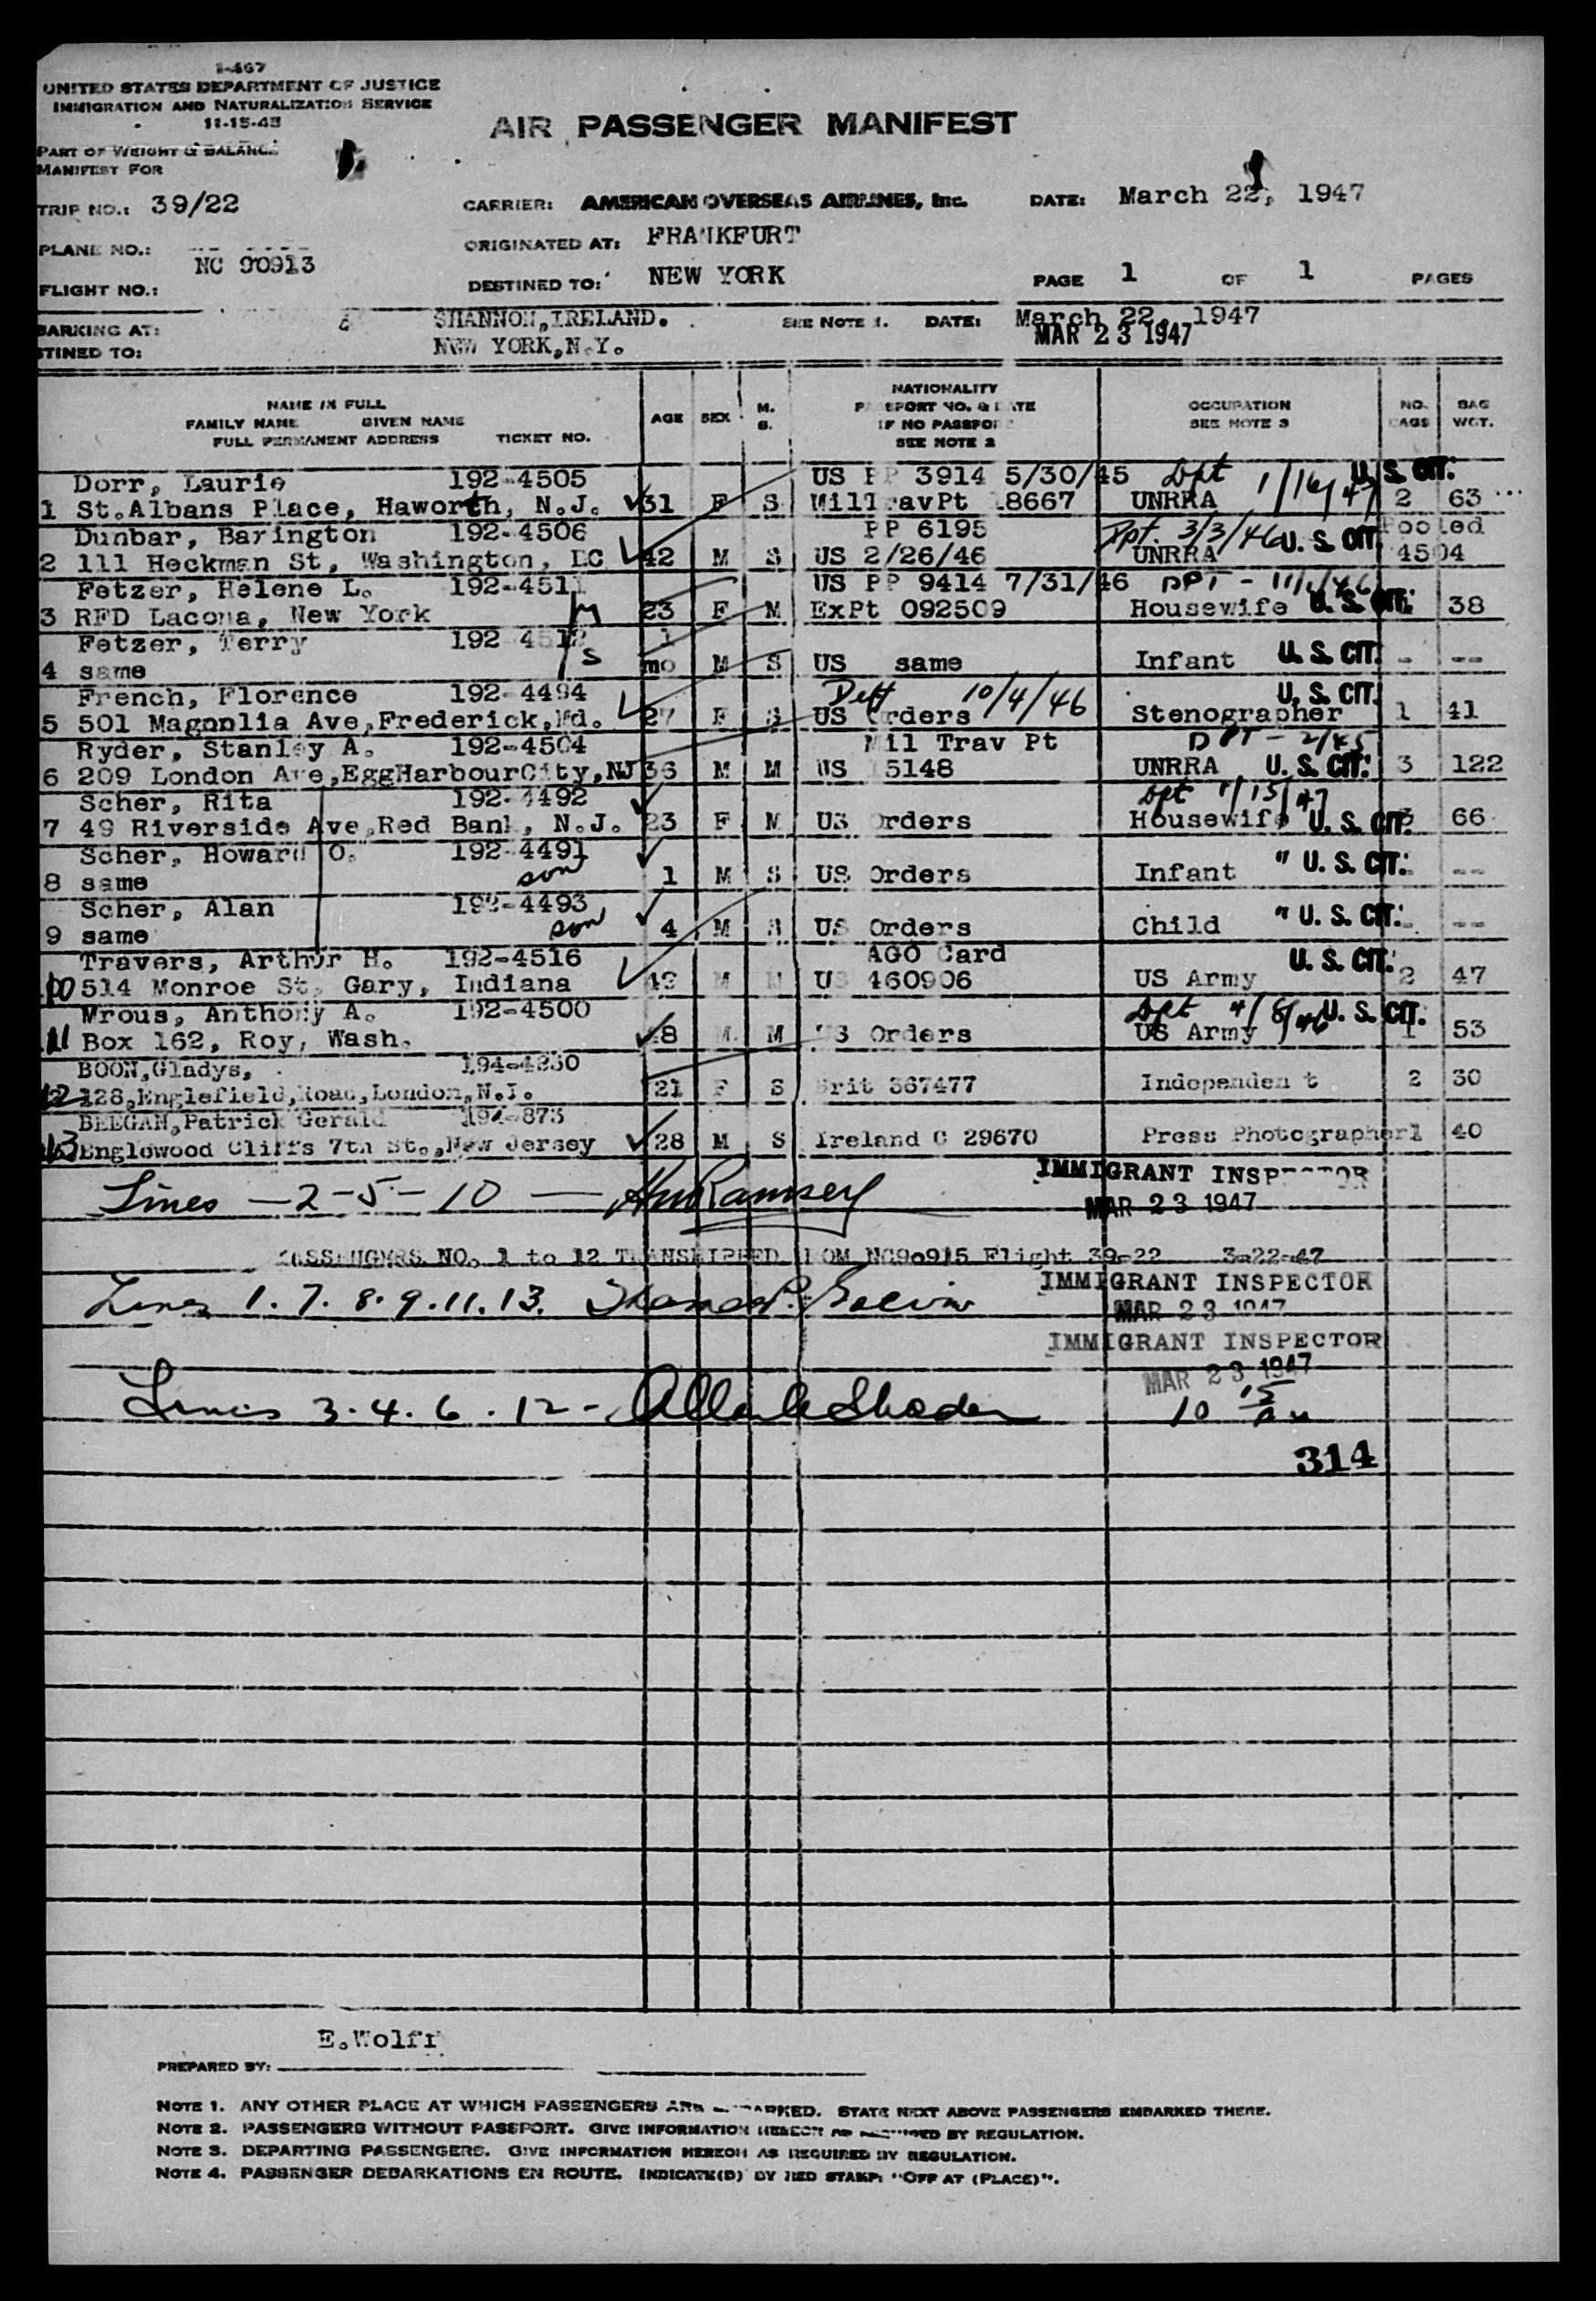 I-467
UNITED STATES DEPARTMENT OF JUSTICE
IMMIGRATION AND NATURALIZATION SERVICE
11-15-45
AIR PASSENGER MANIFEST
PART OF WEIGHT & BALANCE
MANIFEST FOR
TRIP NO.: 39/22 CARRIER: AMERICAN OVERSEAS AIRLINES, Inc. DATE: March 22, 1947
PLANE NO.: NC 90913 ORIGINATED AT: FRANKFURT
FLIGHT NO.: DESTINED TO: NEW YORK PAGE 1 OF 1 PAGES
BARKING AT: SHANNON, IRELAND. SEE NOTE 1. DATE: March 22, 1947
TINED TO: NEW YORK, N.Y. MAR 23 1947
NAME IN FULL
FAMILY NAME GIVEN NAME
FULL PERMANENT ADDRESS TICKET NO. AGE SEX M. S. NATIONALITY PASSPORT NO. & DATE IF NO PASSPORT SEE NOTE 2 OCCUPATION SEE NOTE 3 NO. BAGS BAG WGT.
Dorr, Laurie 192-4505 US PP 3914 5/30/45 Dpt 1/16/47 U. S. CIT.
1 St.Albans Place, Haworth, N.J. 31 F S MilTravPt 18667 UNRRA 2 63
Dunbar, Barington 192-4506 PP 6195 Dpt. 3/3/46 U. S. CIT. Pooled
2 111 Heckman St, Washington, DC 42 M S US 2/26/46 UNRRA 4504
Fetzer, Helene L. 192-4511 US PP 9414 7/31/46 DPT -
3 RFD Lacona, New York M 23 F M ExPt 092509 Housewife U. S. CIT. 38
Fetzer, Terry 192 4512 1
4 same S mo M S US same Infant U. S. CIT. - --
French, Florence 192-4494 Dept 10/4/46 U. S. CIT.
5 501 Magnnlia Ave,Frederick,Md. 27 F S US Orders Stenographer 1 41
Ryder, Stanley A. 192-4504 Mil Trav Pt DPT - 2/45
6 209 London Ave,EggHarbourCity,NJ 36 M M US 15148 UNRRA U. S. CIT. 3 122
Scher, Rita 192-4492 Dpt 1/15/47
7 49 Riverside Ave,Red Bank, N.J. 23 F M US Orders Housewife U. S. CIT. 3 66
Scher, Howard O. 192-4491
8 same son 1 M S US Orders Infant " U. S. CIT. --
Scher, Alan 192-4493
9 same son 4 M S US Orders Child " U. S. CIT. - --
Travers, Arthur H. 192-4516 AGO Card U. S. CIT.
10 514 Monroe St, Gary, Indiana 42 M M US 460906 US Army 2 47
Wrous, Anthony A. 192-4500 Dpt 4/8/46 U. S. CIT.
11 Box 162, Roy, Wash. 28 M M US Orders US Army 1 53
BOON,Gladys, 194-4230
12 128,Englefield,Road,London,N.I. 21 F S Brit 367477 Independent 2 30
BEEGAN,Patrick Gerald 194-873
13 Englewood Cliffs 7th St.,New Jersey 28 M S Ireland C 29670 Press Photographer 1 40
IMMIGRANT INSPECTOR
Lines - 2 - 5 - 10 - Ramsey MAR 23 1947
PASSENGERS NO. 1 to 12 TRANSHIPPED FROM NC90915 Flight 39-22 3-22-47
IMMIGRANT INSPECTOR
Lines 1. 7. 8. 9. 11. 13. Thomas P. MAR 23 1947
IMMIGRANT INSPECTOR
MAR 23 1947
Lines 3. 4. 6. 12 - 10 15
314
E.Wolff
PREPARED BY:
NOTE 1. ANY OTHER PLACE AT WHICH PASSENGERS ARE EMBARKED. STATE NEXT ABOVE PASSENGERS EMBARKED THERE.
NOTE 2. PASSENGERS WITHOUT PASSPORT. GIVE INFORMATION HEREON AS REQUIRED BY REGULATION.
NOTE 3. DEPARTING PASSENGERS. GIVE INFORMATION HEREON AS REQUIRED BY REGULATION.
NOTE 4. PASSENGER DEBARKATIONS EN ROUTE. INDICATE(D) BY RED STAMP: "OFF AT (PLACE)".